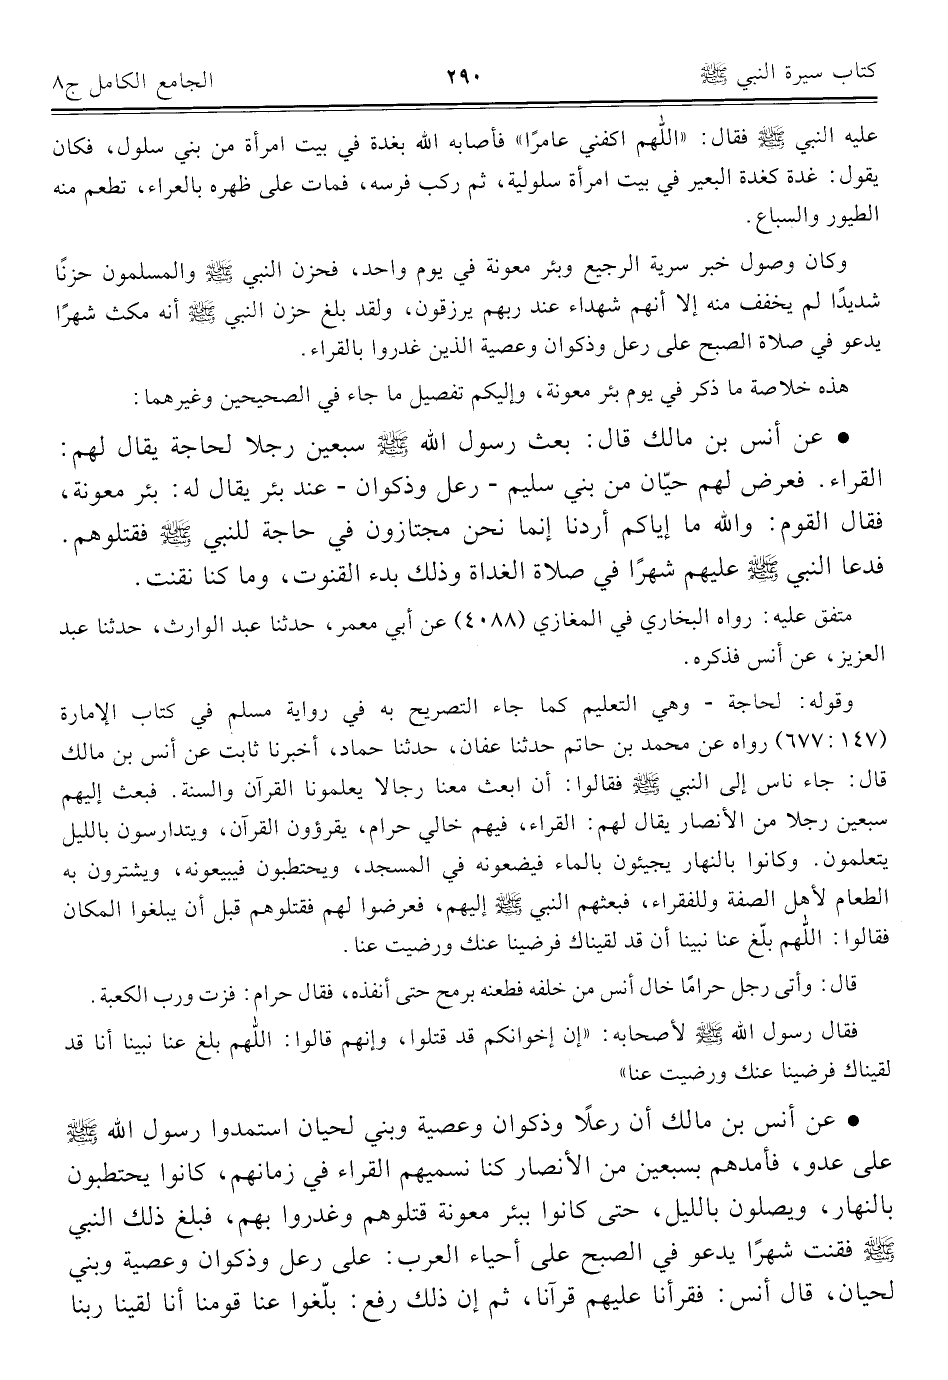 كتاب سيرة النبي ﷺ ٢٩٠ الجامع الكامل ج٨
عليه النبي ﷺ فقال: «اللّهم اكفني عامرًا» فأصابه الله بغدة في بيت امرأة من بني سلول، فكان
يقول: غدة كغدة البعير في بيت امرأة سلولية، ثم ركب فرسه، فمات على ظهره بالعراء، تطعم منه
الطيور والسباع.
وكان وصول خبر سرية الرجيع وبئر معونة في يوم واحد، فحزن النبي ﷺ والمسلمون حزنًا
شديدًا لم يخفف منه إلا أنهم شهداء عند ربهم يرزقون، ولقد بلغ حزن النبي ﷺ أنه مكث شهرًا
يدعو في صلاة الصبح على رعل وذكوان وعصية الذين غدروا بالقراء.
هذه خلاصة ما ذكر في يوم بئر معونة، وإليكم تفصيل ما جاء في الصحيحين وغيرهما:
• عن أنس بن مالك قال: بعث رسول الله ﷺ سبعين رجلا لحاجة يقال لهم:
القراء. فعرض لهم حيّان من بني سليم - رعل وذكوان - عند بئر يقال له: بئر معونة،
فقال القوم: والله ما إياكم أردنا إنما نحن مجتازون في حاجة للنبي ﷺ فقتلوهم.
فدعا النبي ﷺ عليهم شهرًا في صلاة الغداة وذلك بدء القنوت، وما كنا نقنت.
متفق عليه: رواه البخاري في المغازي (٤٠٨٨) عن أبي معمر، حدثنا عبد الوارث، حدثنا عبد
العزيز، عن أنس فذكره.
وقوله: لحاجة - وهي التعليم كما جاء التصريح به في رواية مسلم في كتاب الإمارة
(٦٧٧:١٤٧) رواه عن محمد بن حاتم حدثنا عفان، حدثنا حماد، أخبرنا ثابت عن أنس بن مالك
قال: جاء ناس إلى النبي ﷺ فقالوا: أن ابعث معنا رجالا يعلمونا القرآن والسنة. فبعث إليهم
سبعين رجلا من الأنصار يقال لهم: القراء، فيهم خالي حرام، يقرؤون القرآن، ويتدارسون بالليل
يتعلمون. وكانوا بالنهار يجيئون بالماء فيضعونه في المسجد، ويحتطبون فيبيعونه، ويشترون به
الطعام لأهل الصفة وللفقراء، فبعثهم النبي ﷺ إليهم، فعرضوا لهم فقتلوهم قبل أن يبلغوا المكان
فقالوا: اللّهم بلّغ عنا نبينا أن قد لقيناك فرضينا عنك ورضيت عنا.
قال: وأتى رجل حرامًا خال أنس من خلفه فطعنه برمح حتى أنفذه، فقال حرام: فزت ورب الكعبة.
فقال رسول الله ﷺ لأصحابه: «إن إخوانكم قد قتلوا، وإنهم قالوا: اللّهم بلغ عنا نبينا أنا قد
لقيناك فرضينا عنك ورضيت عنا»
• عن أنس بن مالك أن رعلًا وذكوان وعصية وبني لحيان استمدوا رسول الله ﷺ
على عدو، فأمدهم بسبعين من الأنصار كنا نسميهم القراء في زمانهم، كانوا يحتطبون
بالنهار، ويصلون بالليل، حتى كانوا ببئر معونة قتلوهم وغدروا بهم، فبلغ ذلك النبي
ﷺ فقنت شهرًا يدعو في الصبح على أحياء العرب: على رعل وذكوان وعصية وبني
لحيان، قال أنس: فقرأنا عليهم قرآنا، ثم إن ذلك رفع: بلّغوا عنا قومنا أنا لقينا ربنا